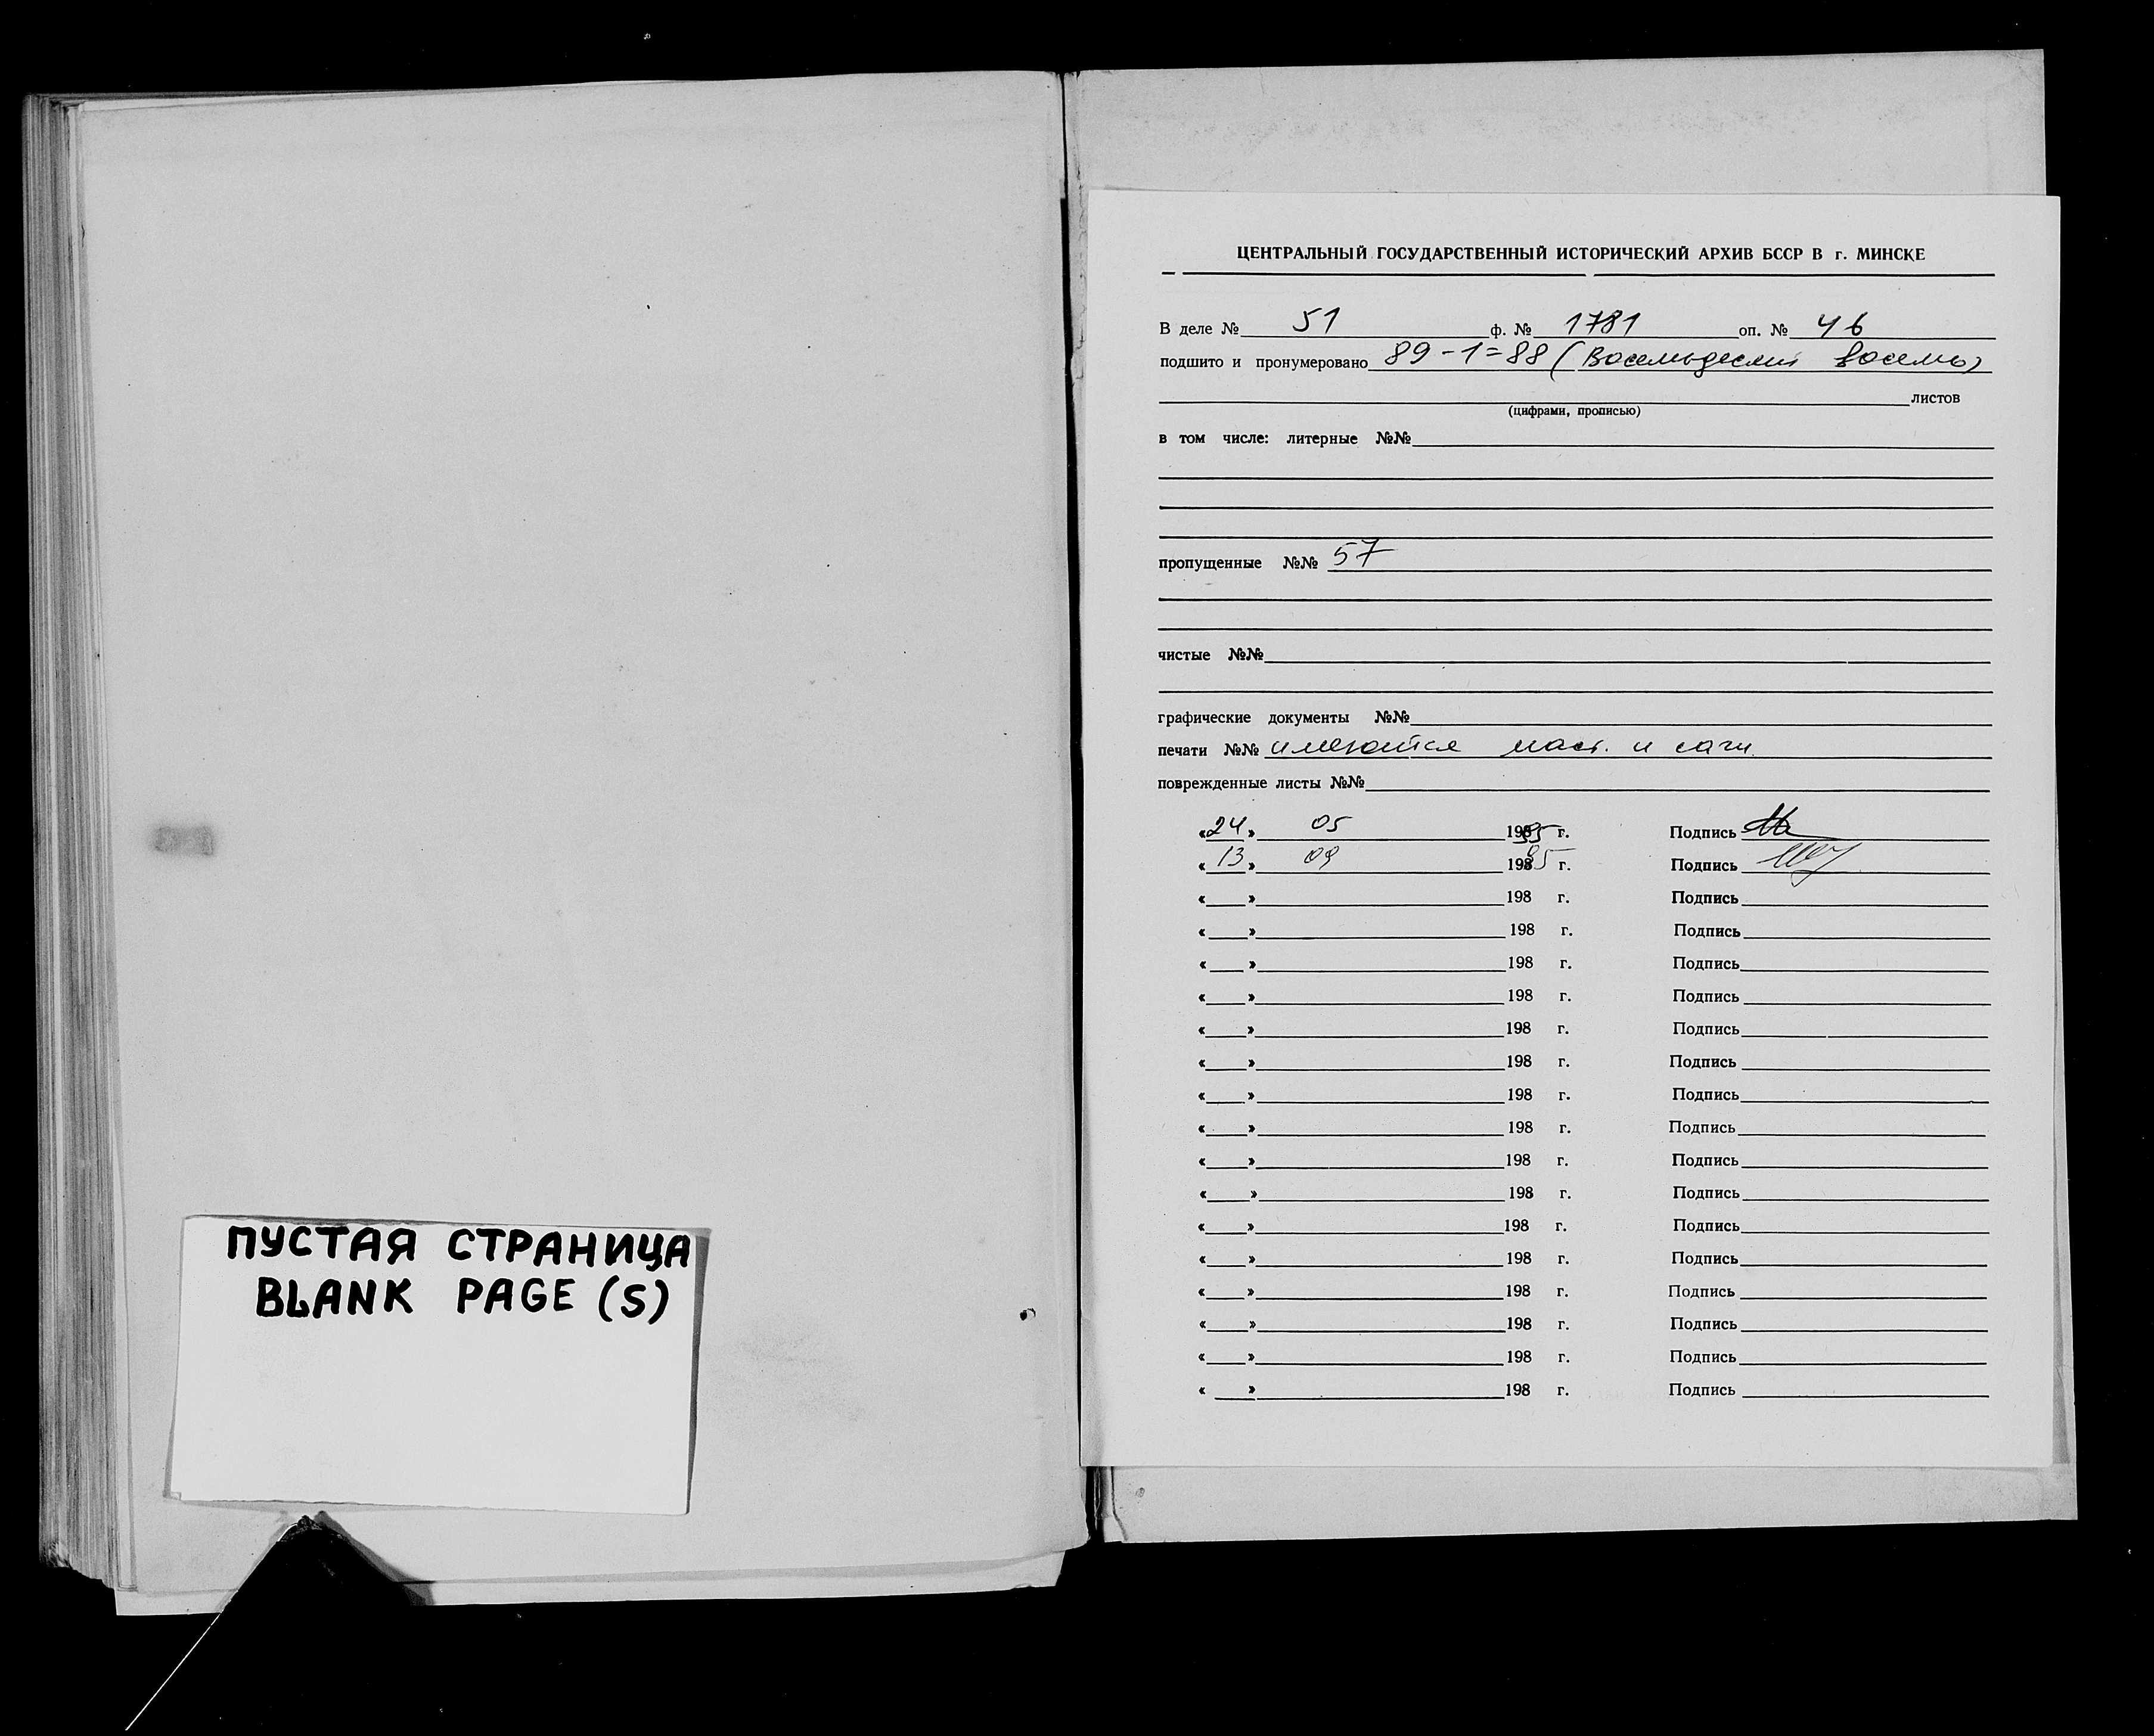 ПУСТАЯ СТРАНИЦА
BLANK PAGE (S)
ЦЕНТРАЛЬНЫЙ ГОСУДАРСТВЕННЫЙ ИСТОРИЧЕСКИЙ АРХИВ БССР В г. МИНСКЕ
В деле № 51 ф. № 1781 оп. № 46
подшито и пронумеровано 89-1=88 (Восемьдесят восемь)
листов
(цифрами, прописью)
в том числе: литерные №№
пропущенные №№ 57
чистые №№
графические документы №№
печати №№ имеются маст. и сагн.
поврежденные листы №№
«24» 05 1995 г. Подпись
«13» 09 1995 г. Подпись
« » 198 г. Подпись
« » 198 г. Подпись
« » 198 г. Подпись
« » 198 г. Подпись
« » 198 г. Подпись
« » 198 г. Подпись
« » 198 г. Подпись
« » 198 г. Подпись
« » 198 г. Подпись
« » 198 г. Подпись
« » 198 г. Подпись
« » 198 г. Подпись
« » 198 г. Подпись
« » 198 г. Подпись
« » 198 г. Подпись
« » 198 г. Подпись